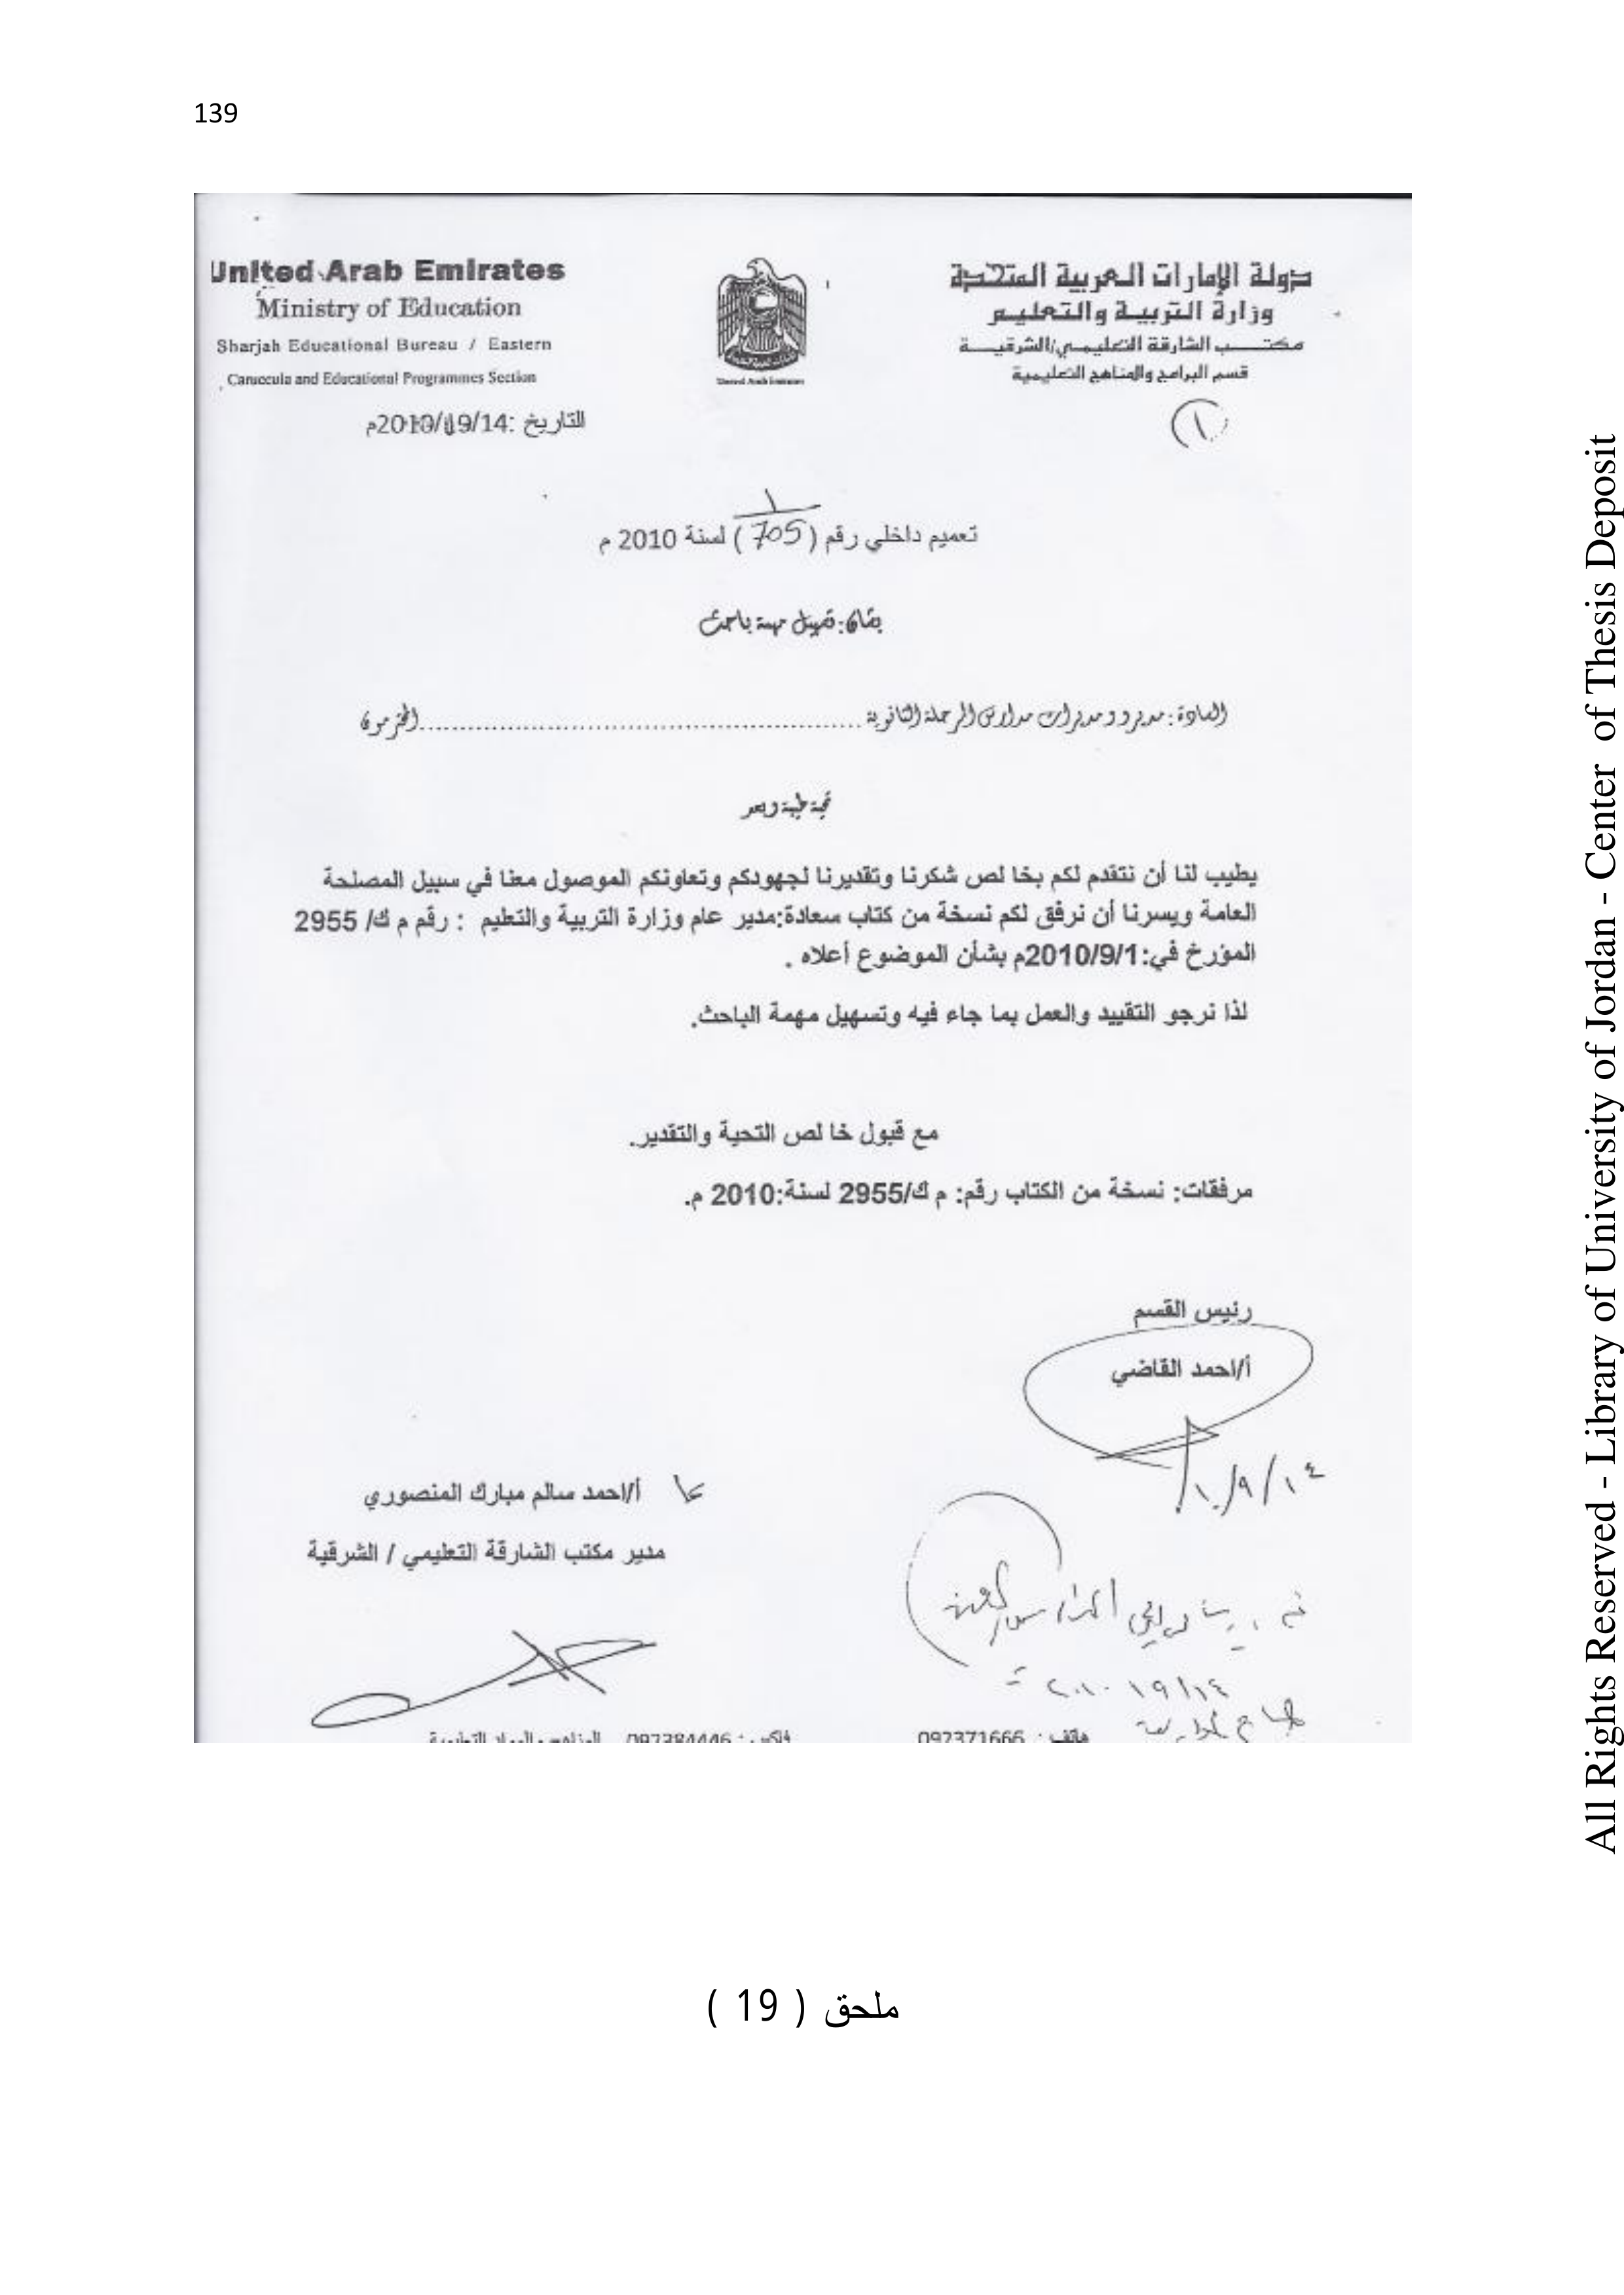 139
United Arab Emirates
Ministry of Education
Sharjah Educational Bureau / Eastern
Caruccula and Educational Programmes Section
دولة الإمارات العربية المتحدة
وزارة التربية والتعليم
مكتب الشارقة التعليمي/الشرقية
قسم البرامج والمناهج التعليمية
United Arab Emirates
(١)
التاريخ :
١
تعميم داخلي رقم ( 705 ) لسنة 2010 م
بشأن: تسهيل مهمة باحث
السادة: مديرو ومديرات مدارس المرحلة الثانوية ........................ المحترمون
تحية طيبة وبعد
يطيب لنا أن نتقدم لكم بخا لص شكرنا وتقديرنا لجهودكم وتعاونكم الموصول معنا في سبيل المصلحة
العامة ويسرنا أن نرفق لكم نسخة من كتاب سعادة:مدير عام وزارة التربية والتعليم : رقم م ك/ 2955
المؤرخ في:2010/9/1م بشأن الموضوع أعلاه .
لذا نرجو التقييد والعمل بما جاء فيه وتسهيل مهمة الباحث.
مع قبول خا لص التحية والتقدير.
مرفقات: نسخة من الكتاب رقم: م ك/2955 لسنة:2010 م.
رئيس القسم
أ/احمد القاضي
١٤/٩/١٠
أ/احمد سالم مبارك المنصوري
مدير مكتب الشارقة التعليمي / الشرقية
هاتف : 097371666 فاكس : 097384446
ملحق ( 19 )
All Rights Reserved - Library of University of Jordan - Center of Thesis Deposit